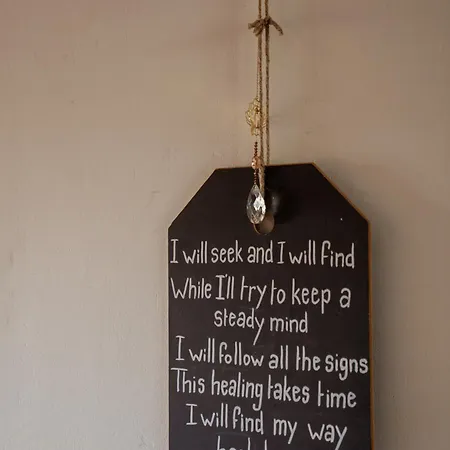 I will seek and I will find
While I'll try to keep a
steady mind
I will follow all the signs
This healing takes time
I will find my way